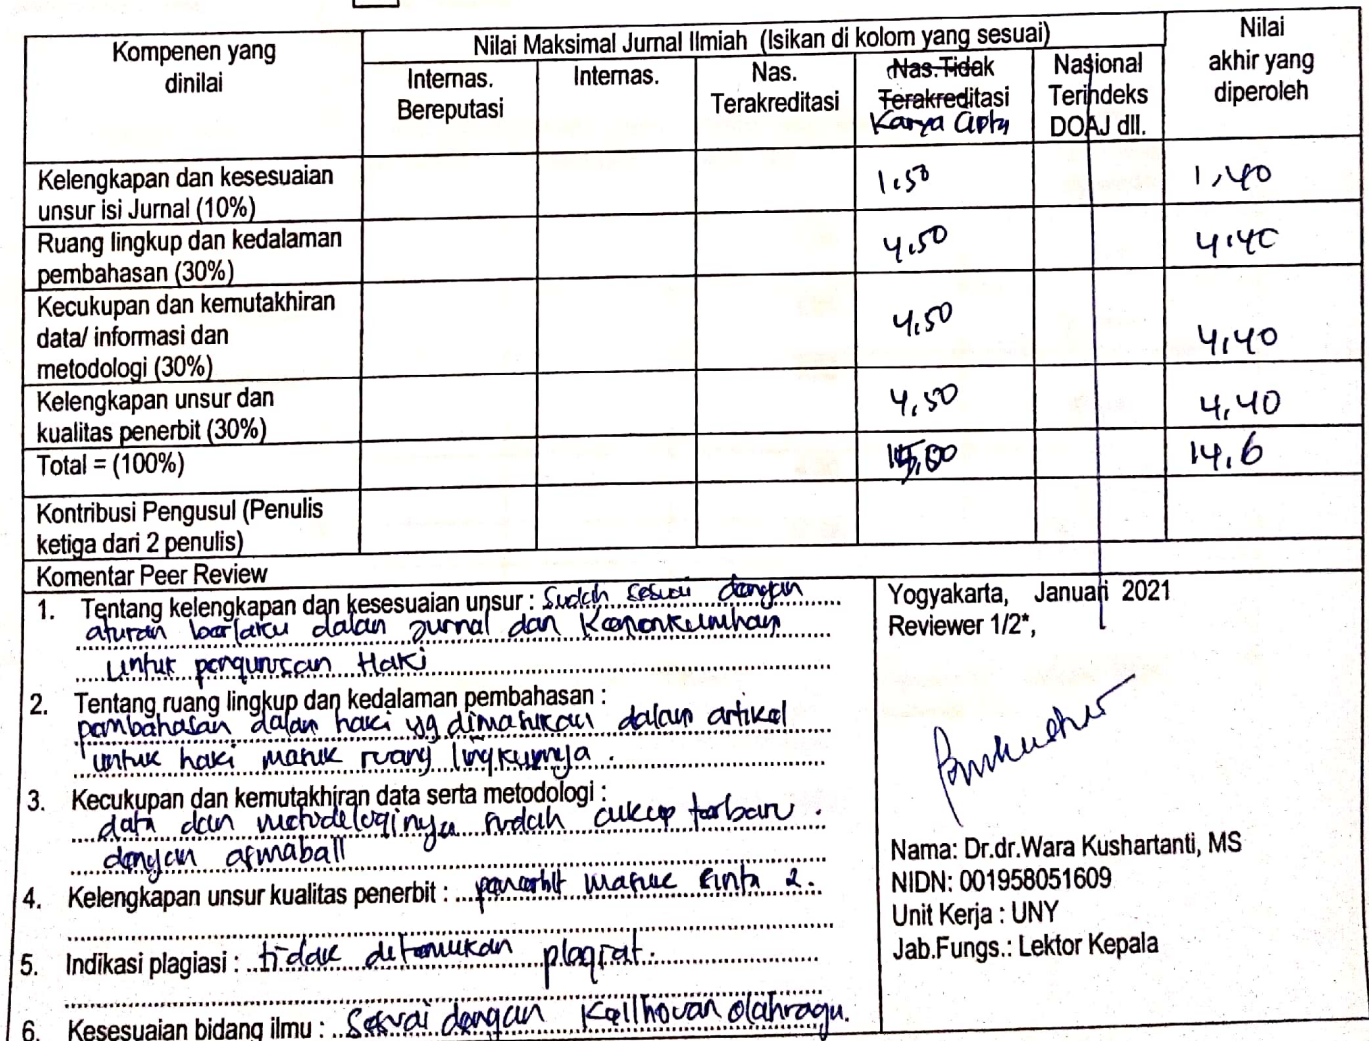 Kompenen yang dinilai
Nilai Maksimal Jurnal Ilmiah (Isikan di kolom yang sesuai)
Nilai akhir yang diperoleh
Internas. Bereputasi
Internas.
Nas. Terakreditasi
Nas.Tidak Terakreditasi
Karya Cipta
Nasional Terindeks DOAJ dll.
Kelengkapan dan kesesuaian
unsur isi Jurnal (10%)
1,50
1,40
Ruang lingkup dan kedalaman
pembahasan (30%)
4,50
4,40
Kecukupan dan kemutakhiran
data/ informasi dan
metodologi (30%)
4,50
4,40
Kelengkapan unsur dan
kualitas penerbit (30%)
4,50
4,40
Total = (100%)
15,00
14,6
Kontribusi Pengusul (Penulis
ketiga dari 2 penulis)
Komentar Peer Review
1. Tentang kelengkapan dan kesesuaian unsur : sudah sesuai dengan
aturan berlaku dalam jurnal dan
untuk pengurusan Haki
2. Tentang ruang lingkup dan kedalaman pembahasan :
pembahasan dalam haki yg dimasukan dalam artikel
untuk haki masuk ruang lingkupnya.
3. Kecukupan dan kemutakhiran data serta metodologi :
data dan metodeloginya sudah cukup terbaru.
dengan armaball
4. Kelengkapan unsur kualitas penerbit : penerbit masuk sinta 2.
5. Indikasi plagiasi : tidak ditemukan plagiat.
6. Kesesuaian bidang ilmu : Sesuai dengan olahraga.
Yogyakarta, Januari 2021
Reviewer 1/2*,
Nama: Dr.dr.Wara Kushartanti, MS
NIDN: 001958051609
Unit Kerja : UNY
Jab.Fungs.: Lektor Kepala